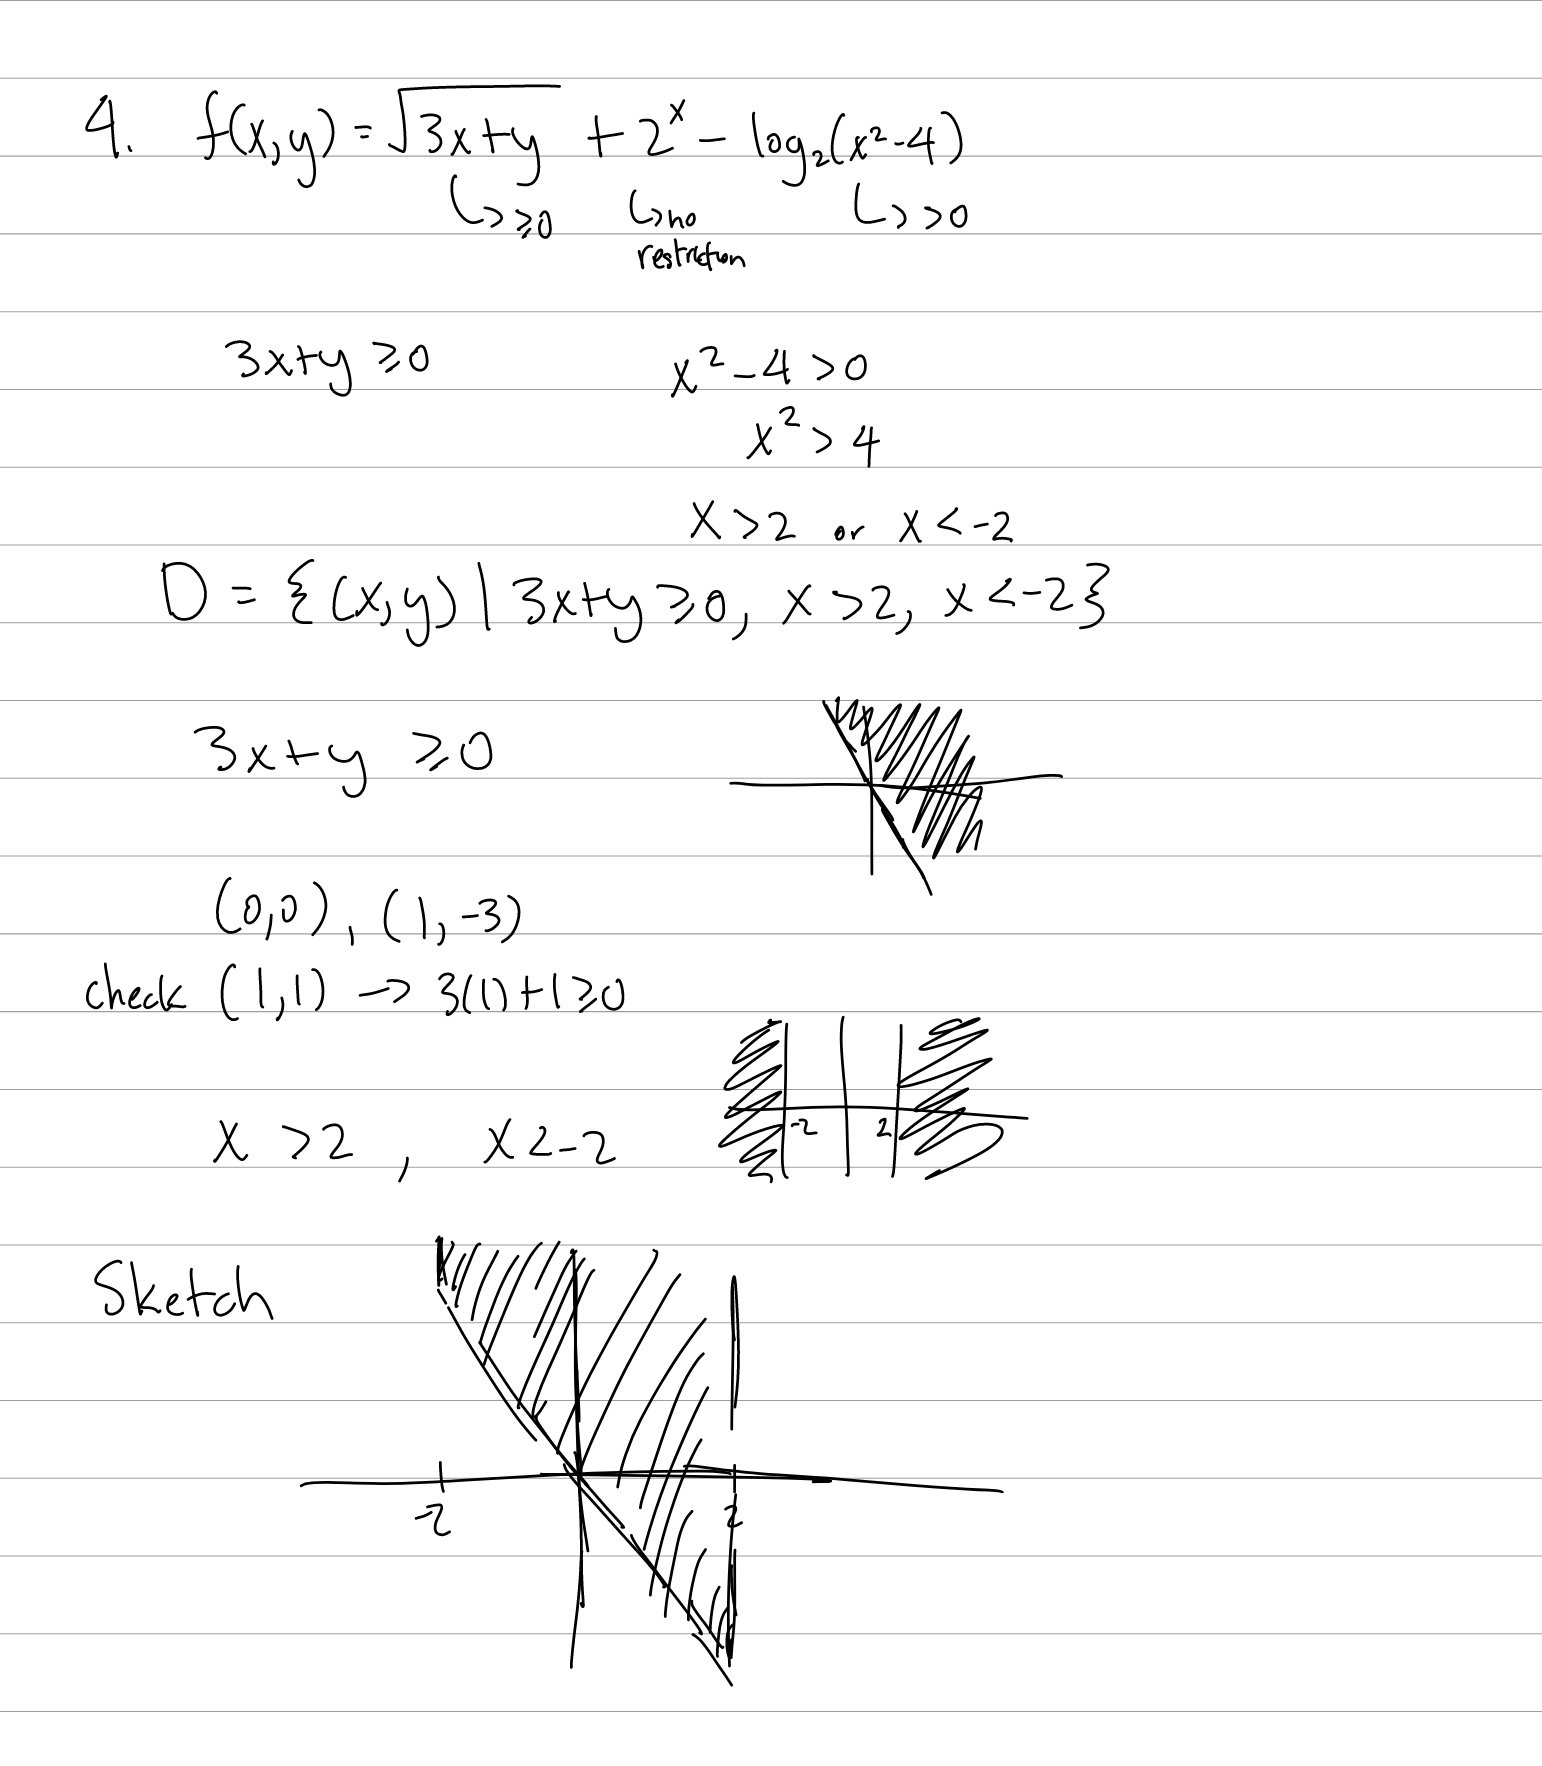 4. f(x,y) = √(3x+y) + 2^x - log₂(x²-4)
↳ ≥0 ↳ no restriction ↳ >0
3x+y ≥0 x²-4 >0
x² > 4
x >2 or x <-2
D = {(x,y) | 3x+y ≥0, x >2, x <-2}
3x+y ≥0
(0,0), (1,-3)
check (1,1) → 3(1)+1≥0
-2 2
x >2 , x <-2
Sketch
-2 2